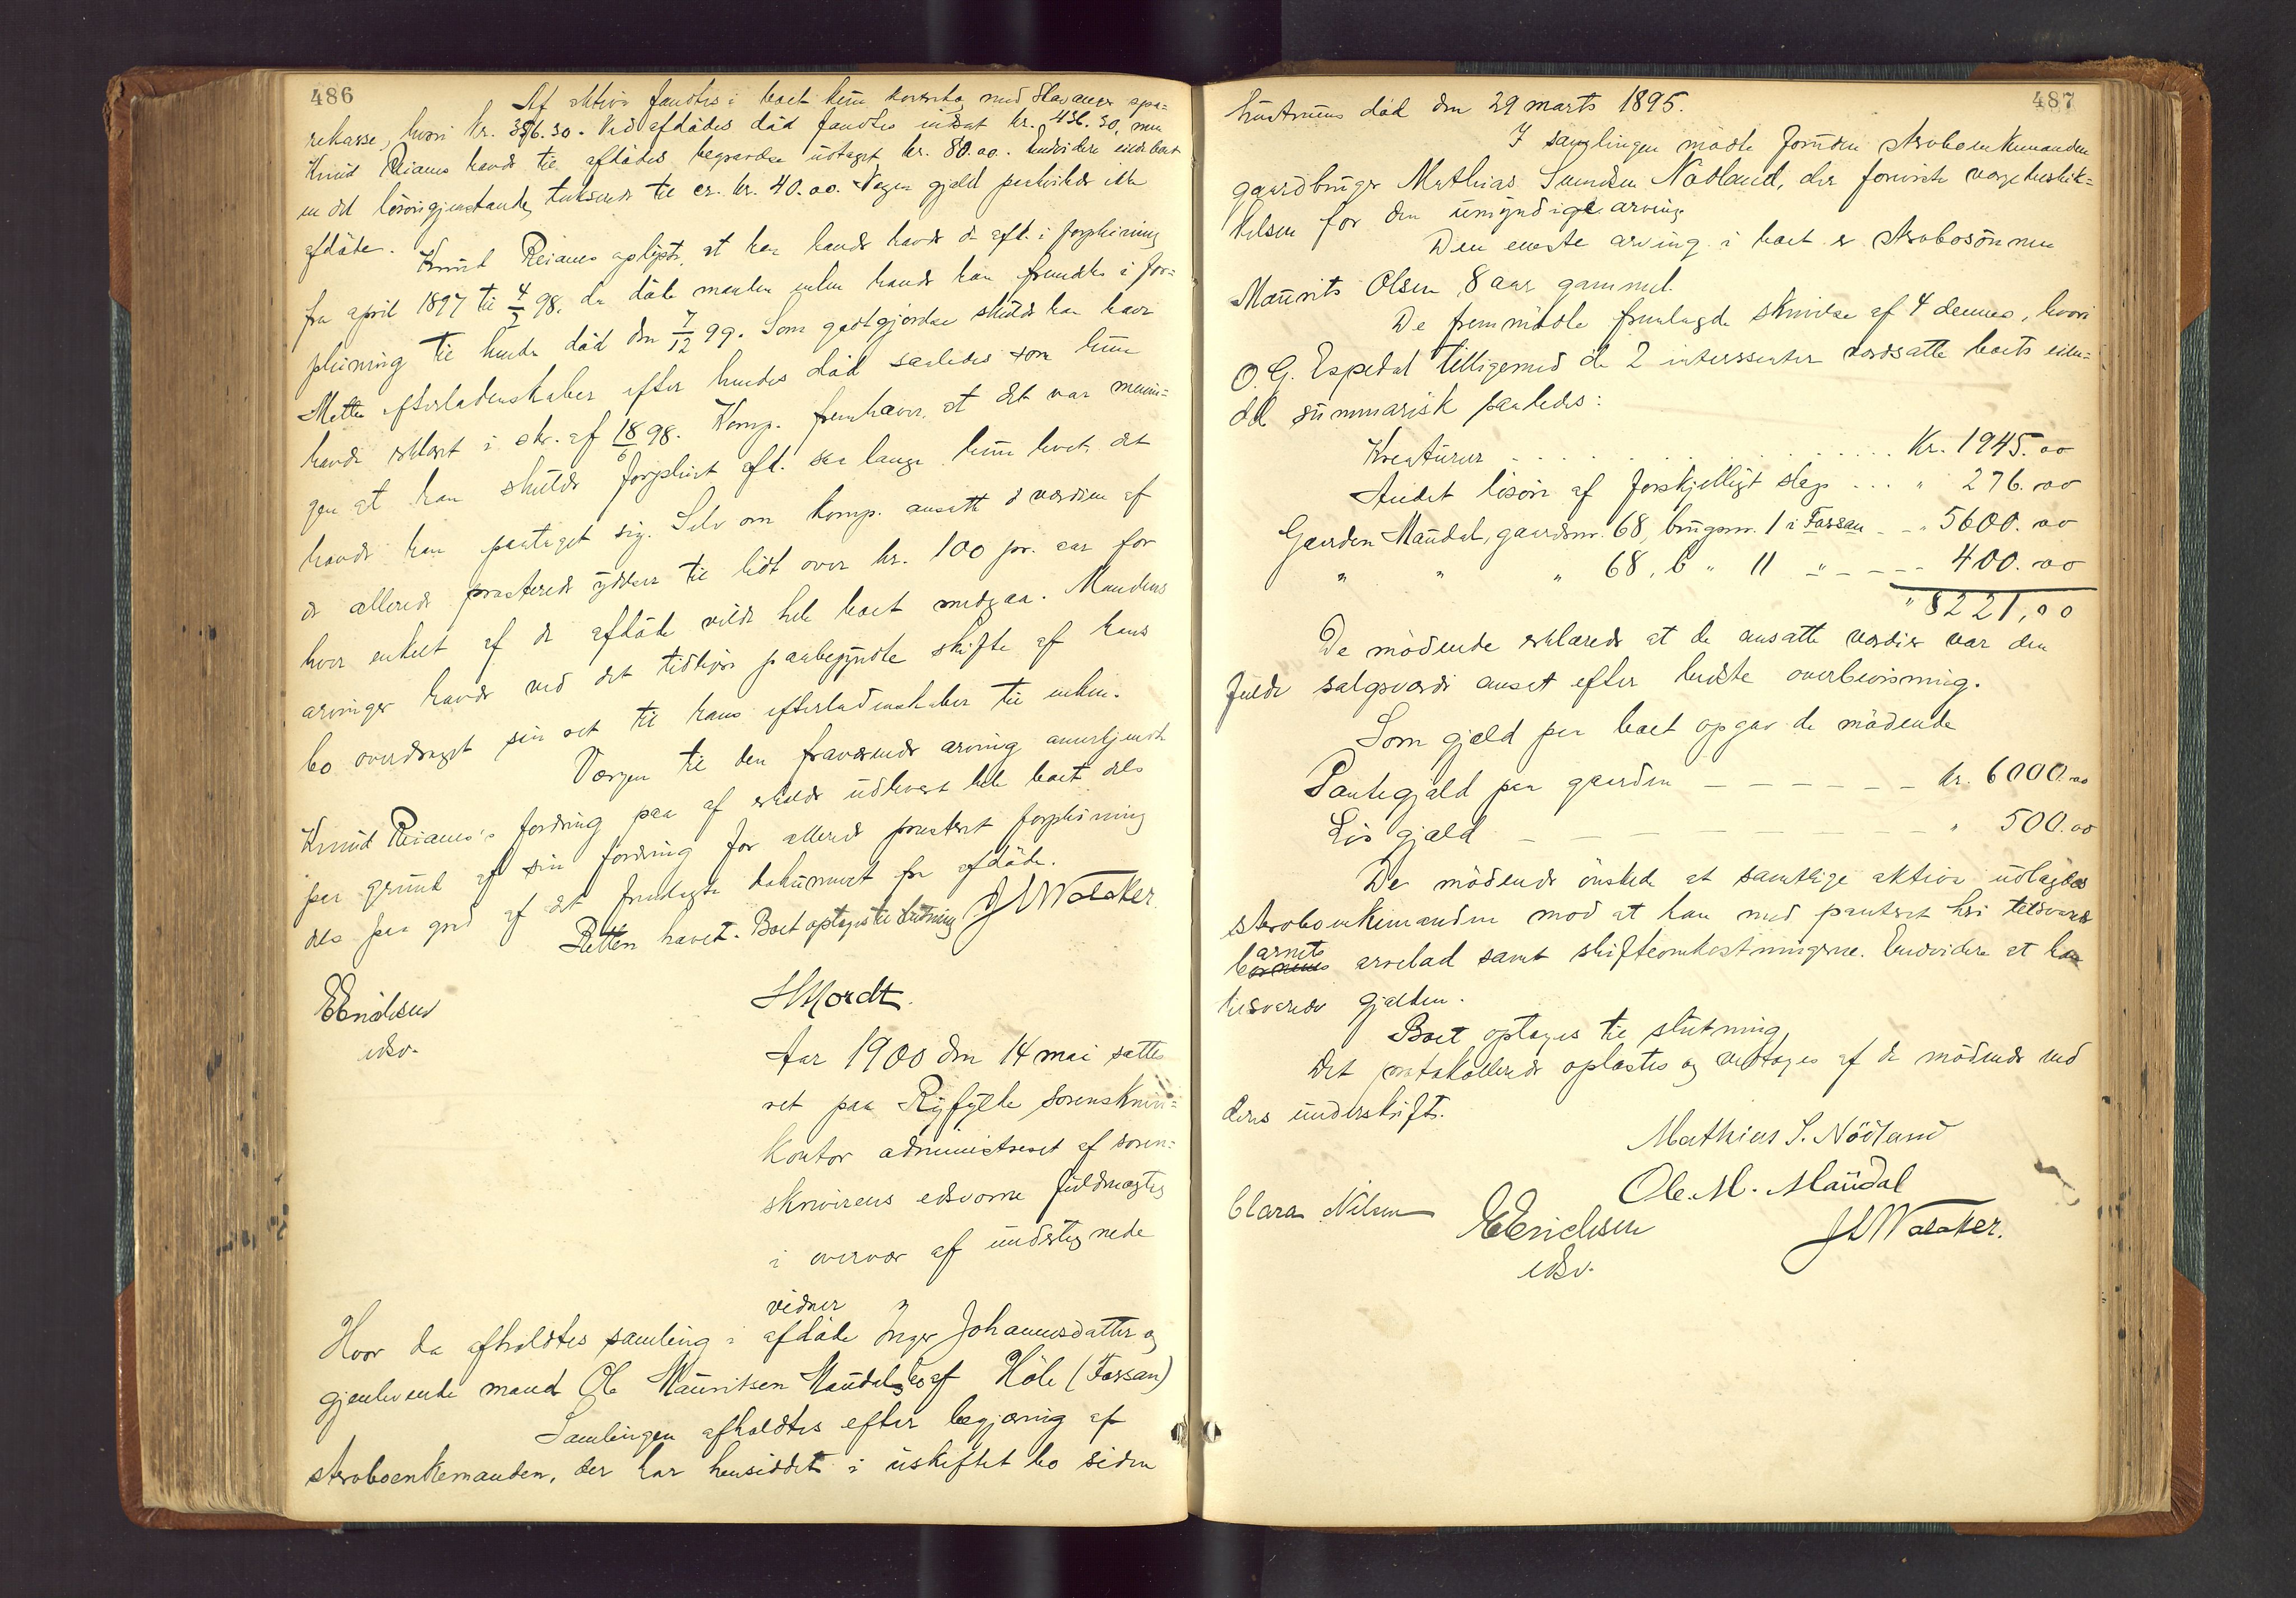 486
Af aktiva fandtes i boet kun kontrabog med Stavanger spa=
rekasse, hvori kr. 356.30. Ved afdødes død fandtes indsat kr. 436.30, men
Knud Reianes havde til afdødes begravelse udtaget kr. 80.00. Endvidere eiede boet
en del løsøregjenstande, takserede til ca. kr. 40.00. Nogen gjæld paahvilede ikke
afdøde.
Knud Reianes oplyste, at han havde havt de afd. i forpleining
fra april 1897 til 4/2 98, da døde manden enken havde han fremdeles i for=
pleining til hendes død den 7/12 99. Som godtgjørelse skulde han have
Mettes efterladenskaber efter hendes død saaledes som hun
havde erklæret i skr. af 18/6 98. Komp. fremhæver, at det var menin=
gen at han skulde forpleiet afd. saa længe hun levet, det
havde han paataget sig. Selv om komp. ansatte værdien af
de allerede præsterede ydelser til lidt over kr. 100 pr. aar for
hver enkelt af de afdøde vilde hele boet medgaa. Mandens
arvinger havde ved det tidligere paabegyndte skifte af hans
bo overdraget sin ret til hans efterladenskaber til enken.
Værgen til den fraværende arving anerkjendte
Knud Reianes's fordring paa at erholde udleveret hele boet dels
paa grund af sin fordring for allerede præsteret forpleining
dels paa grd af det fremlagte dokument fra afdøde.
Retten hævet. Boet optages til slutning J L Walaker.
EErichsen
edsv.
H Mordt.
Aar 1900 den 14 mai sattes
ret paa Ryfylke sorenskriv=
kontor administreret af soren=
skriverens edsvorne fuldmægtig
i overvær af undertegnede
vidner
Hvor da afholdtes samling i afdøde Inger Johannesdatter og
gjenlevende mand Ole Mauritsen Maudals bo af Høle (Fossan)
Samlingen afholdtes efter begjæring af
stervboenkemanden, der har hensiddet i uskiftet bo siden
487
hustruens død den 29 marts 1895.
I samlingen mødte foruden stervboenkemanden
gaardbruger Mathias Svendsen Nødland, der foreviste værgebeskik=
kelsen for den umyndige arving.
Den eneste arving i boet er stervbosønnen
Maurits Olsen 8 aar gammel.
De fremmødte fremlagde skrivelse af 4 dennes, hvori
O. G. Espedal tilligemed de 2 interessenter værdsatte boets eien=
del summarisk saaledes:
Kreaturer ........ Kr. 1945.00
Andet løsøre af forskjelligt slags ... " 276.00
Gaarden Maudal, gaardsnr. 68, brugsnr. 1 i Fossan - - " 5600.00
" " " 68, b " 11 " - - - - 400.00
" 8221,00
De mødende erklærede at de ansatte værdier var den
fulde salgsværdi ansat efter bedste overbevisning.
Som gjæld paa boet opgav de mødende
Pantegjæld paa gaarden - - - - - - kr. 6000.00
Løs gjæld - - - - - - - " 500.00
De mødende ønskede at samtlige aktiva udlagdes
stervboenkemanden mod at han med panteret heri tilsvarede
barnets arvelod samt skifteomkostningerne. Endvidere at han
tilsvarede gjælden.
Boet optages til slutning.
Det protokollerede oplæstes og vedtoges af de mødende ved
deres underskrift.
Mathias S. Nödland
Ole. M. Maudal
Clara Nilsen
EErichsen
edsv.
J L Walaker.